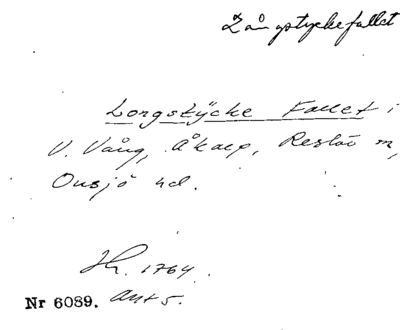 Långstyckefallet
Longstÿcke Fallet i
V. Vång, Åkarp, Reslöv m,
Onsjö hd.
Hh. 1764.
Nr 6089. Ant 5.